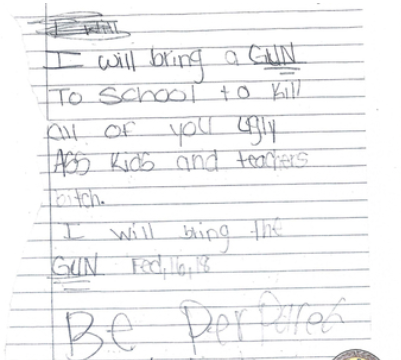 I will
I will bring a GUN
To School to Kill
all of you ugly
ASS Kids and teachers
bitch.
I will bring the
GUN Fed, 16, 18
Be Perpared